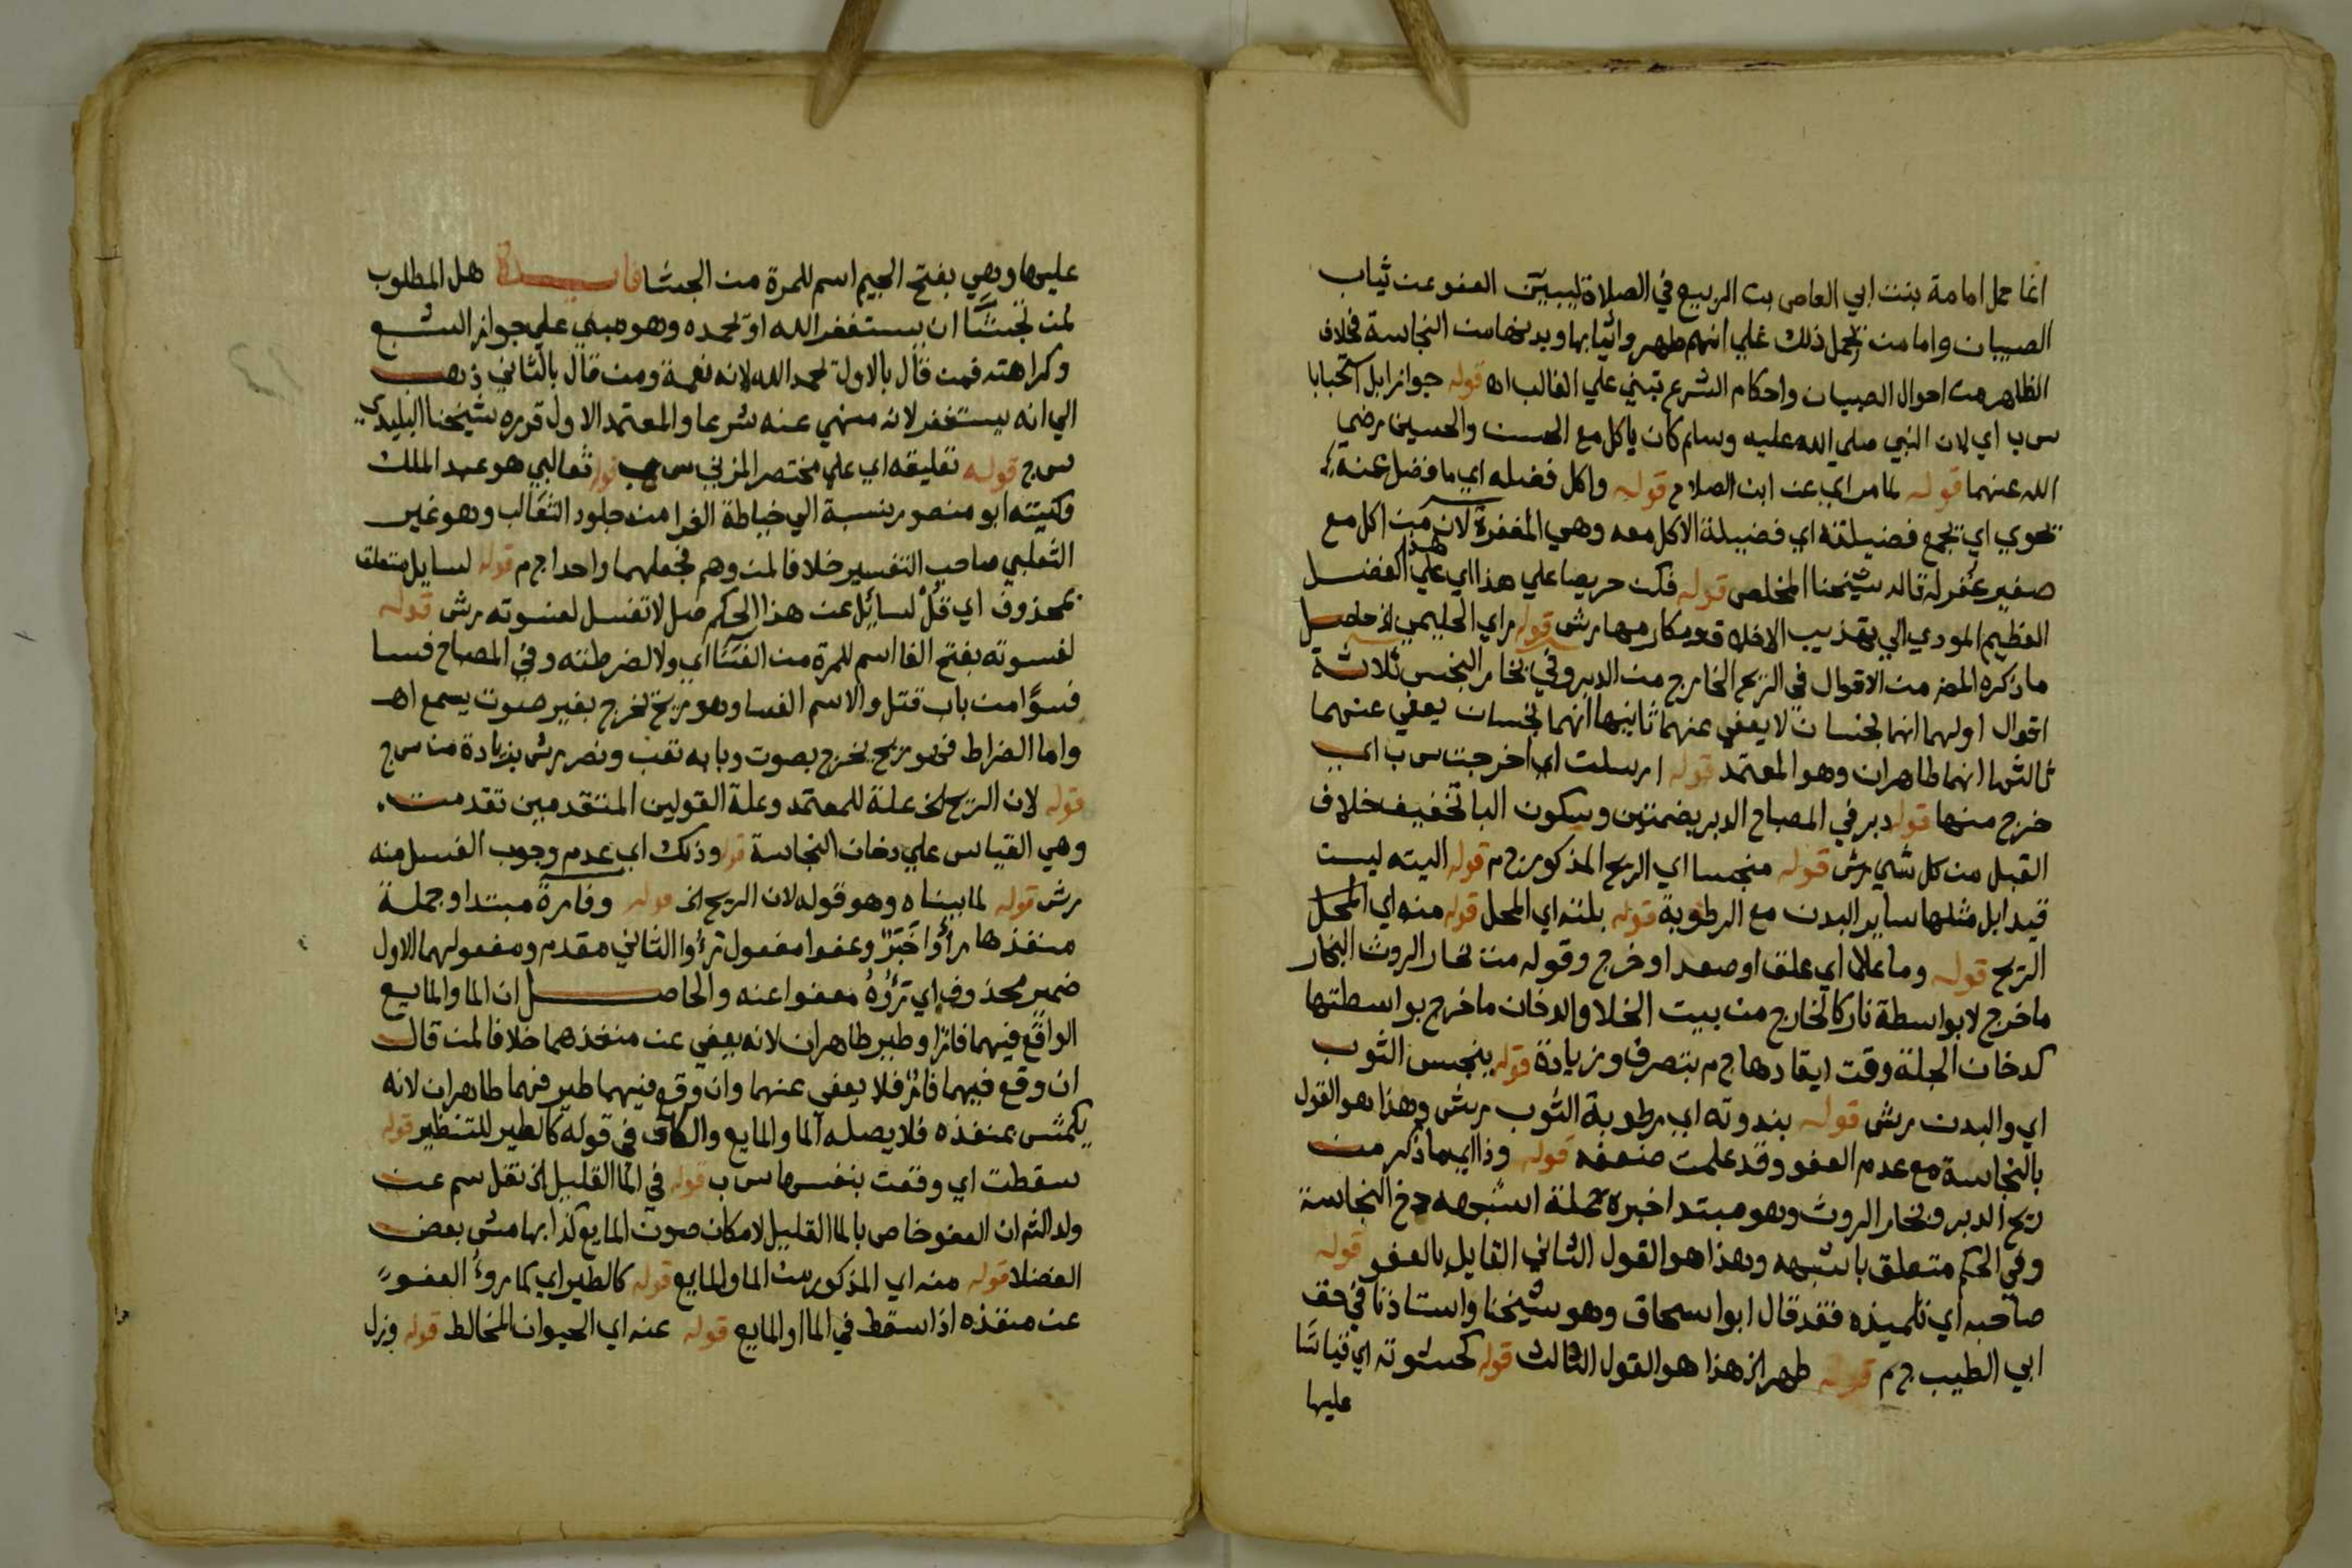 انما حمل امامة بنت ابي العاص بن الربيع في الصلاة ليبين العفو عن ثياب
الصبيان واما من يحمل ذلك علي انهم طهروا ثيابها وبدنها من النجاسة فخلاف
الظاهر من احوال الصبيان واحكام الشرع تبني علي الغالب اه قوله جوازا بل استحبابا
س ب اي لان النبي صلي الله عليه وسلم كان ياكل مع الحسن والحسين رضي
الله عنهما قوله لما مر اي عن ابن الصلاح قوله واكل فضله اي ما فضل عنه
تحوي اي تجمع فضيلته اي فضيلة الاكل معه وهي المغفرة لان من اكل مع
صغير غفر له قاله شيخنا المخلص قوله فكن حريصا علي هذا اي علي هذا الفضل
العظيم المودي الي تهذيب الاخلاق ومكارمها رش قوله راي الحليمي الخ حاصل
ما ذكره المص من الاقوال في الريح الخارج من الدبر وفي بخار النجس ثلاثة
اقوال اولهما انهما نجسان لا يعفي عنهما ثانيها انهما نجسان يعفي عنهما
ثالثها انهما طاهران وهو المعتمد قوله ارسلت اي اخرجت س ب اي
خرج منها قوله دبر في المصباح الدبر بضمتين وسكون البا تخفيف خلاف
القبل من كل شي رش قوله منجسا اي الريح المذكور ح م قوله اليته ليست
قيدا بل مثلها ساير البدن مع الرطوبة قوله بلته اي المحل قوله منه اي المحل
الريح قوله وما علا اي علق او صعد او خرج وقوله من بخار الروث البخار
ما خرج لا بواسطة نار كالخارج من بيت الخلا والدخان ما خرج بواسطتها
كدخان الجلة وقت ايقادها ح م بتصرف وزيادة قوله ينجس الثوب
اي والبدن رش قوله بندوته اي رطوبة الثوب رش وهذا هو القول
بالنجاسة مع عدم العفو وقد علمت ضعفه قوله وذا اي ما ذكر من
ريح الدبر وبخار الروث وهو مبتدا خبره جملة اشبهه دخ النجاسة
وفي الحكم متعلق باشبهه وهذا هو القول الثاني القايل بالعفو قوله
صاحبه اي تلميذه فقد قال ابو اسحاق وهو شيخنا واستاذنا في حق
ابي الطيب ح م قوله طهر الخ هذا هو القول الثالث قوله كجشوته اي قياسا
عليها
عليها وهي بفتح الجيم اسم للمرة من الجشا فايدة هل المطلوب
لمن تجشا ان يستغفر الله او يحمده وهو مبني علي جواز الشبع
وكراهته فمن قال بالاول قال يحمد الله لانه نعمة ومن قال بالثاني ذهب
الي انه يستغفر لانه منهي عنه شرعا والمعتمد الاول قرره شيخنا البليدي
س ج قوله تعليقه اي علي مختصر المزني س ب قوله ثعالبي هو عبد الملك
وكنيته ابو منصور نسبة الي خياطة الفرا من جلود الثعالب وهو غير
الثعلبي صاحب التفسير خلافا لمن وهم فجعلهما واحدا ح م قوله لسايل متعلق
بمحذوف اي قل لسائل عن هذا الحكم هل لا تغسل لفسوته رش قوله
لفسوته بفتح الفا اسم للمرة من الفسا اي ولا لضرطته وفي المصباح فسا
فسوا من باب قتل والاسم الفسا وهو ريح تخرج بغير صوت يسمع اه
واما الضراط فهو ريح يخرج بصوت وبابه تعب ونصر رش بزيادة من س ج
قوله لان الريح الخ علة للمعتمد وعلة القولين المتقدمين تقدمت
وهي القياس علي دخان النجاسة قوله وذلك اي عدم وجوب الغسل منه
رش قوله لما بيناه وهو قوله لان الريح الخ قوله وفارة مبتدا وجملة
منفذها راوا خبر وعفوا مفعول تراوا الثاني مقدم ومفعولهما الاول
ضمير محذوف اي تراوه معفوا عنه والحاصل ان الما والمايع
الواقع فيهما فار او طير طاهران لانه يعفي عن منفذهما خلافا لمن قال
ان وقع فيهما فار فلا يعفي عنهما وان وقع فيهما طير فهما طاهران لانه
يكمش بمنفذه فلا يصله الما والمايع والكاف في قوله كالطير للتنظير قوله
سقطت اي وقعت بنفسها س ب قوله في الما القليل الخ نقل سم عن
ولد الثم ان العفو خاص بالما القليل لامكان صون المايع كذا بهامش بعض
الفضلا قوله منه اي المذكور من الما والمايع قوله كالطير اي كما روا العفو
عن منفذه اذا سقط في الما او المايع قوله عنه اي الحيوان المخالط قوله ونزل